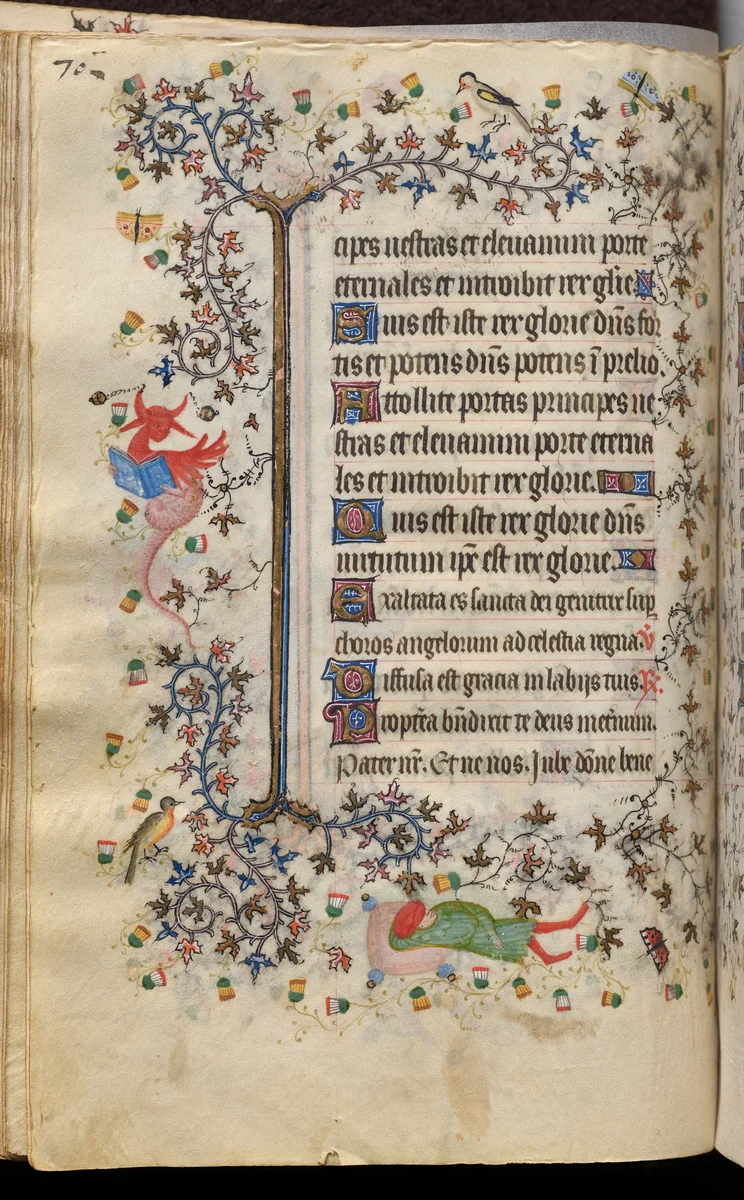 70
cipes uestras et eleuamini porte
eternales et introibit rex glīe.
Quis est iste rex glorie dn̄s for
tis et potens dn̄s potens ī prelio.
Attollite portas principes ue
stras et eleuamini porte eterna
les et introibit rex glorie.
Quis est iste rex glorie dn̄s
uirtutum ip̄e est rex glorie.
Exaltata es sancta dei genitrix sup
choros angelorum ad celestia regna. v̄
Diffusa est gracia in labijs tuis. R̄.
Propt̄ea bn̄dixit te deus inet̄num.
Pater nr̄. Et ne nos. Jube dōne bene